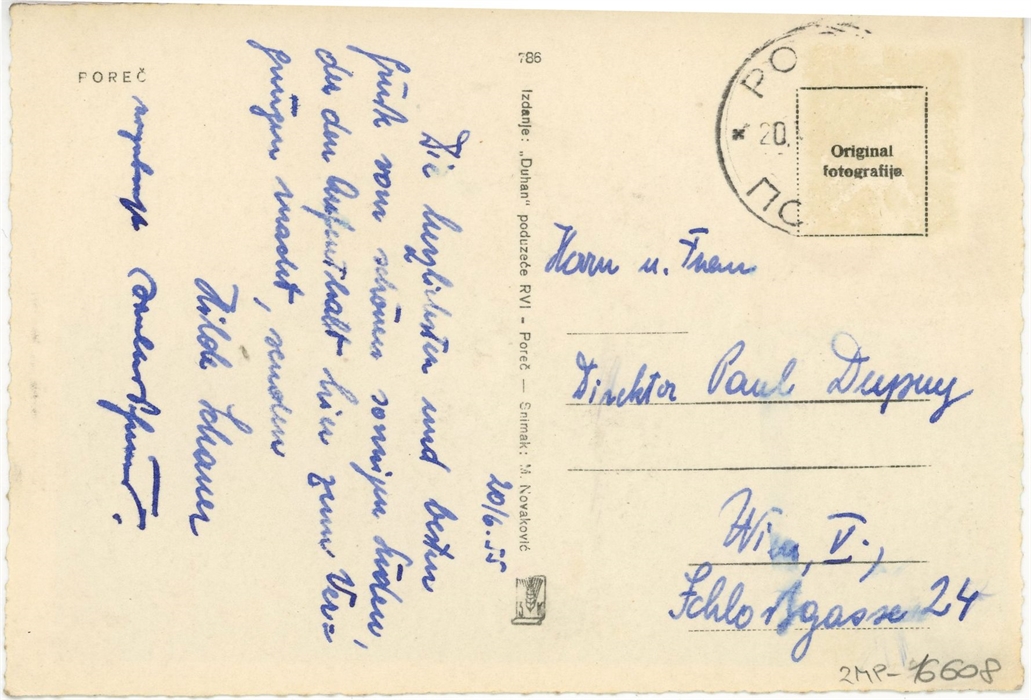 POREČ
20/6.55
Die herzlichsten und besten
Grüße vom schönen sonnigen Süden,
der den Aufenthalt hier zum Ver=
gnügen macht, senden
Hilde Lohauer
786
Izdanje: „Duhan" poduzeće RVI - Poreč — Snimak: M. Novaković
PO
* 20.
ПО
Original
fotografije
Herrn u. Frau
Direktor Paul Dupuy
Wien, V.,
Schloßgasse 24
2MP-16608